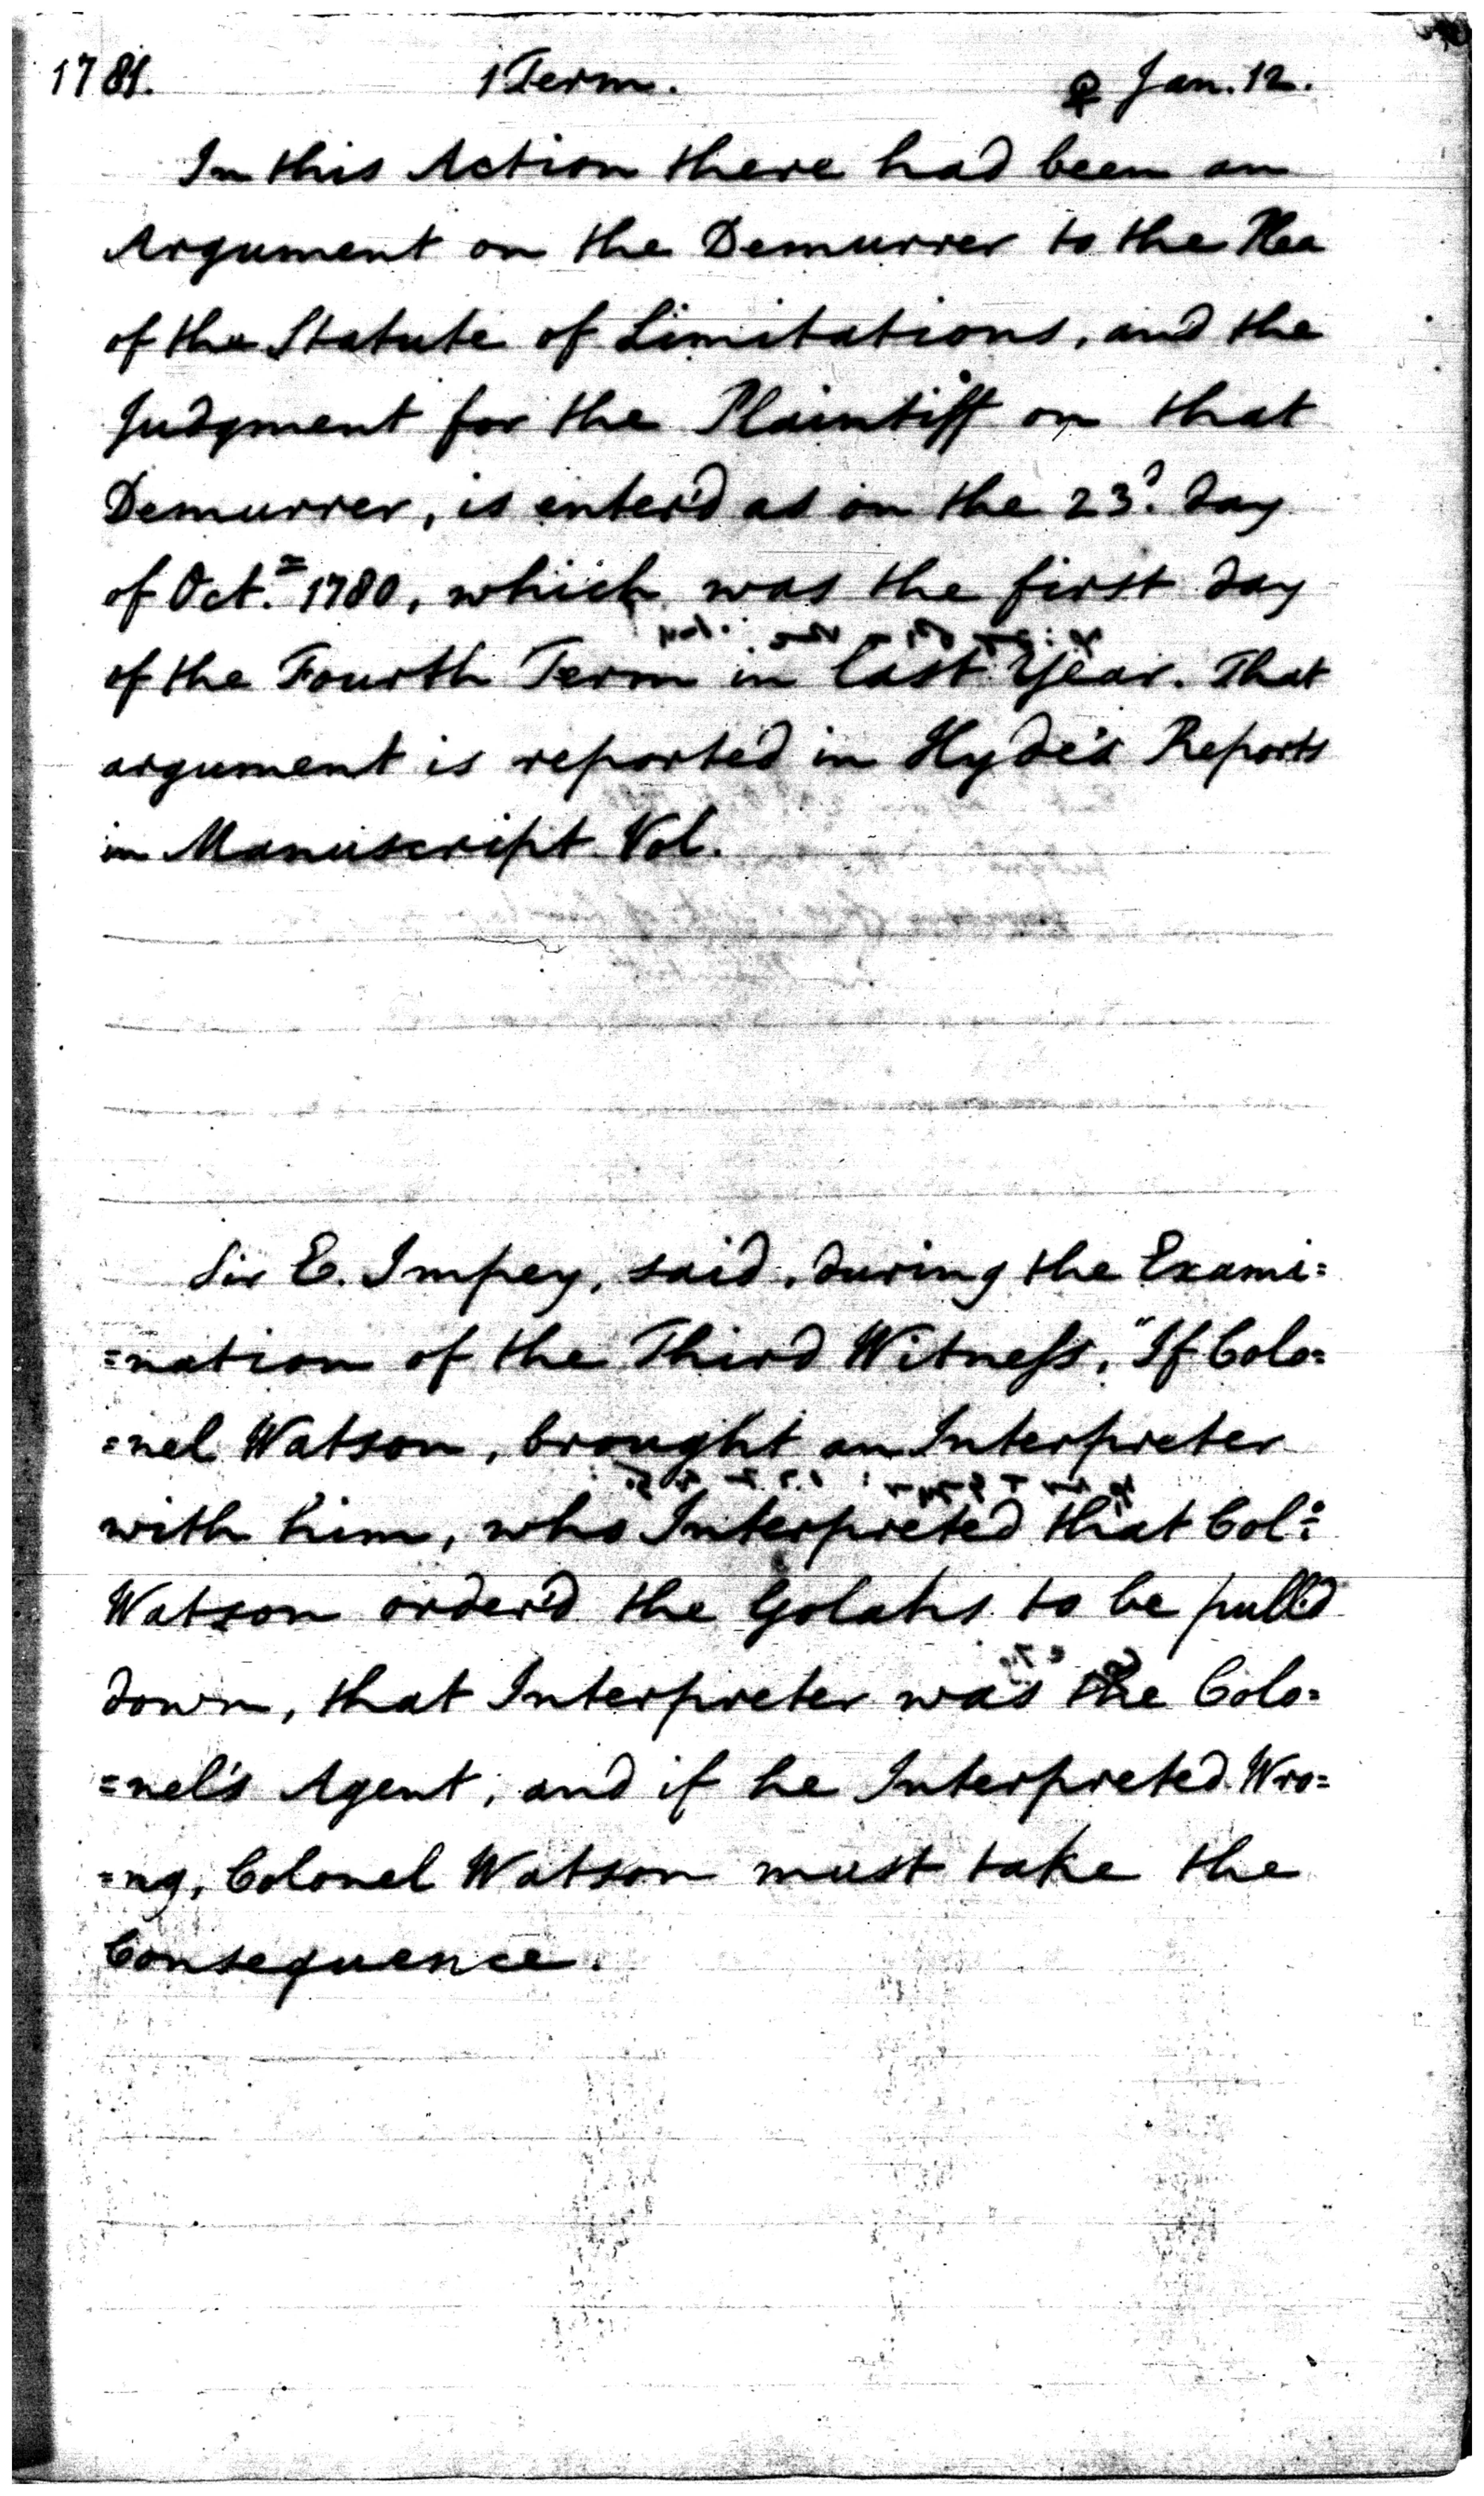 1781. 1 Term. ♀ Jan. 12.
In this Action there had been an
Argument on the Demurrer to the Plea
of the Statute of Limitations, and the
Judgment for the Plaintiff on that
Demurrer, is enter'd as on the 23.d day
of Oct.r 1780, which was the first day
of the Fourth Term in last Year. That
argument is reported in Hyde's Reports
in Manuscript Vol.
Sir E. Impey, said, during the Exami=
=nation of the Third Witneſs, "If Colo=
=nel Watson, brought an Interpreter
with him, who Interpreted that Col:
Watson order'd the Golahs to be pull'd
down, that Interpreter was the Colo=
=nel's Agent, and if he Interpreted Wro=
=ng, Colonel Watson must take the
Consequence.